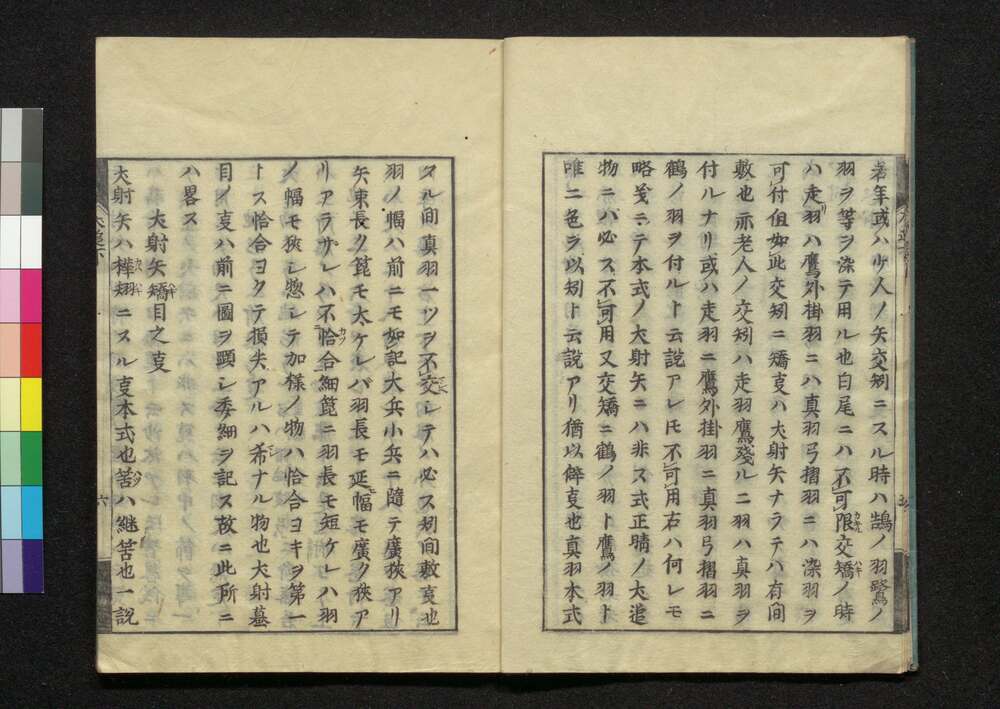 若年或ハ少人ノ矢交矧ニスル時ハ鵠ノ羽鷺ノ
羽ヲ等ヲ染テ用ル也白尾ニハ不可限交矯ノ時
ハ走羽ハ鷹外掛羽ニハ真羽弓摺羽ニハ染羽ヲ
可付但如此交矧ニ矯叓ハ犬射矢ナラテハ有間
敷也亦老人ノ交矧ハ走羽鷹残ル二羽ハ真羽ヲ
付ルナリ或ハ走羽ニ鷹外掛羽ニ真羽弓摺羽ニ
鶴ノ羽ヲ付ルト云説アレ𪜈不可用右ハ何レモ
略茂ニテ本式ノ犬射矢ニハ非ス式正晴ノ犬追
物ニハ必ス不可用又交矯ニ鶴ノ羽ト鷹ノ羽ト
唯二色ヲ以矧ト云説アリ猶以僻叓也真羽本式
タル間真羽一ツヲ不交シテハ必ス矧間敷叓也
羽ノ幅ハ前ニモ如記大兵小兵ニ隨テ廣狹アリ
矢束長ク箆モ太ケレバ羽長モ延幅モ廣ク狹ア
リアラサレハ不恰合細箆ニ羽長モ短ケレハ羽
ノ幅モ狹シ惣シテ加様ノ物ハ恰合ヨキヲ第一
トス恰合ヨクテ損失アルハ希ナル物也犬射蟇
目ノ叓ハ前ニ圖ヲ顕シ委細ヲ記ス故ニ此所ニ
ハ畧ス
犬射矢矯目之叓
犬射矢ハ樺矧ニスル叓本式也筈ハ継筈也一説